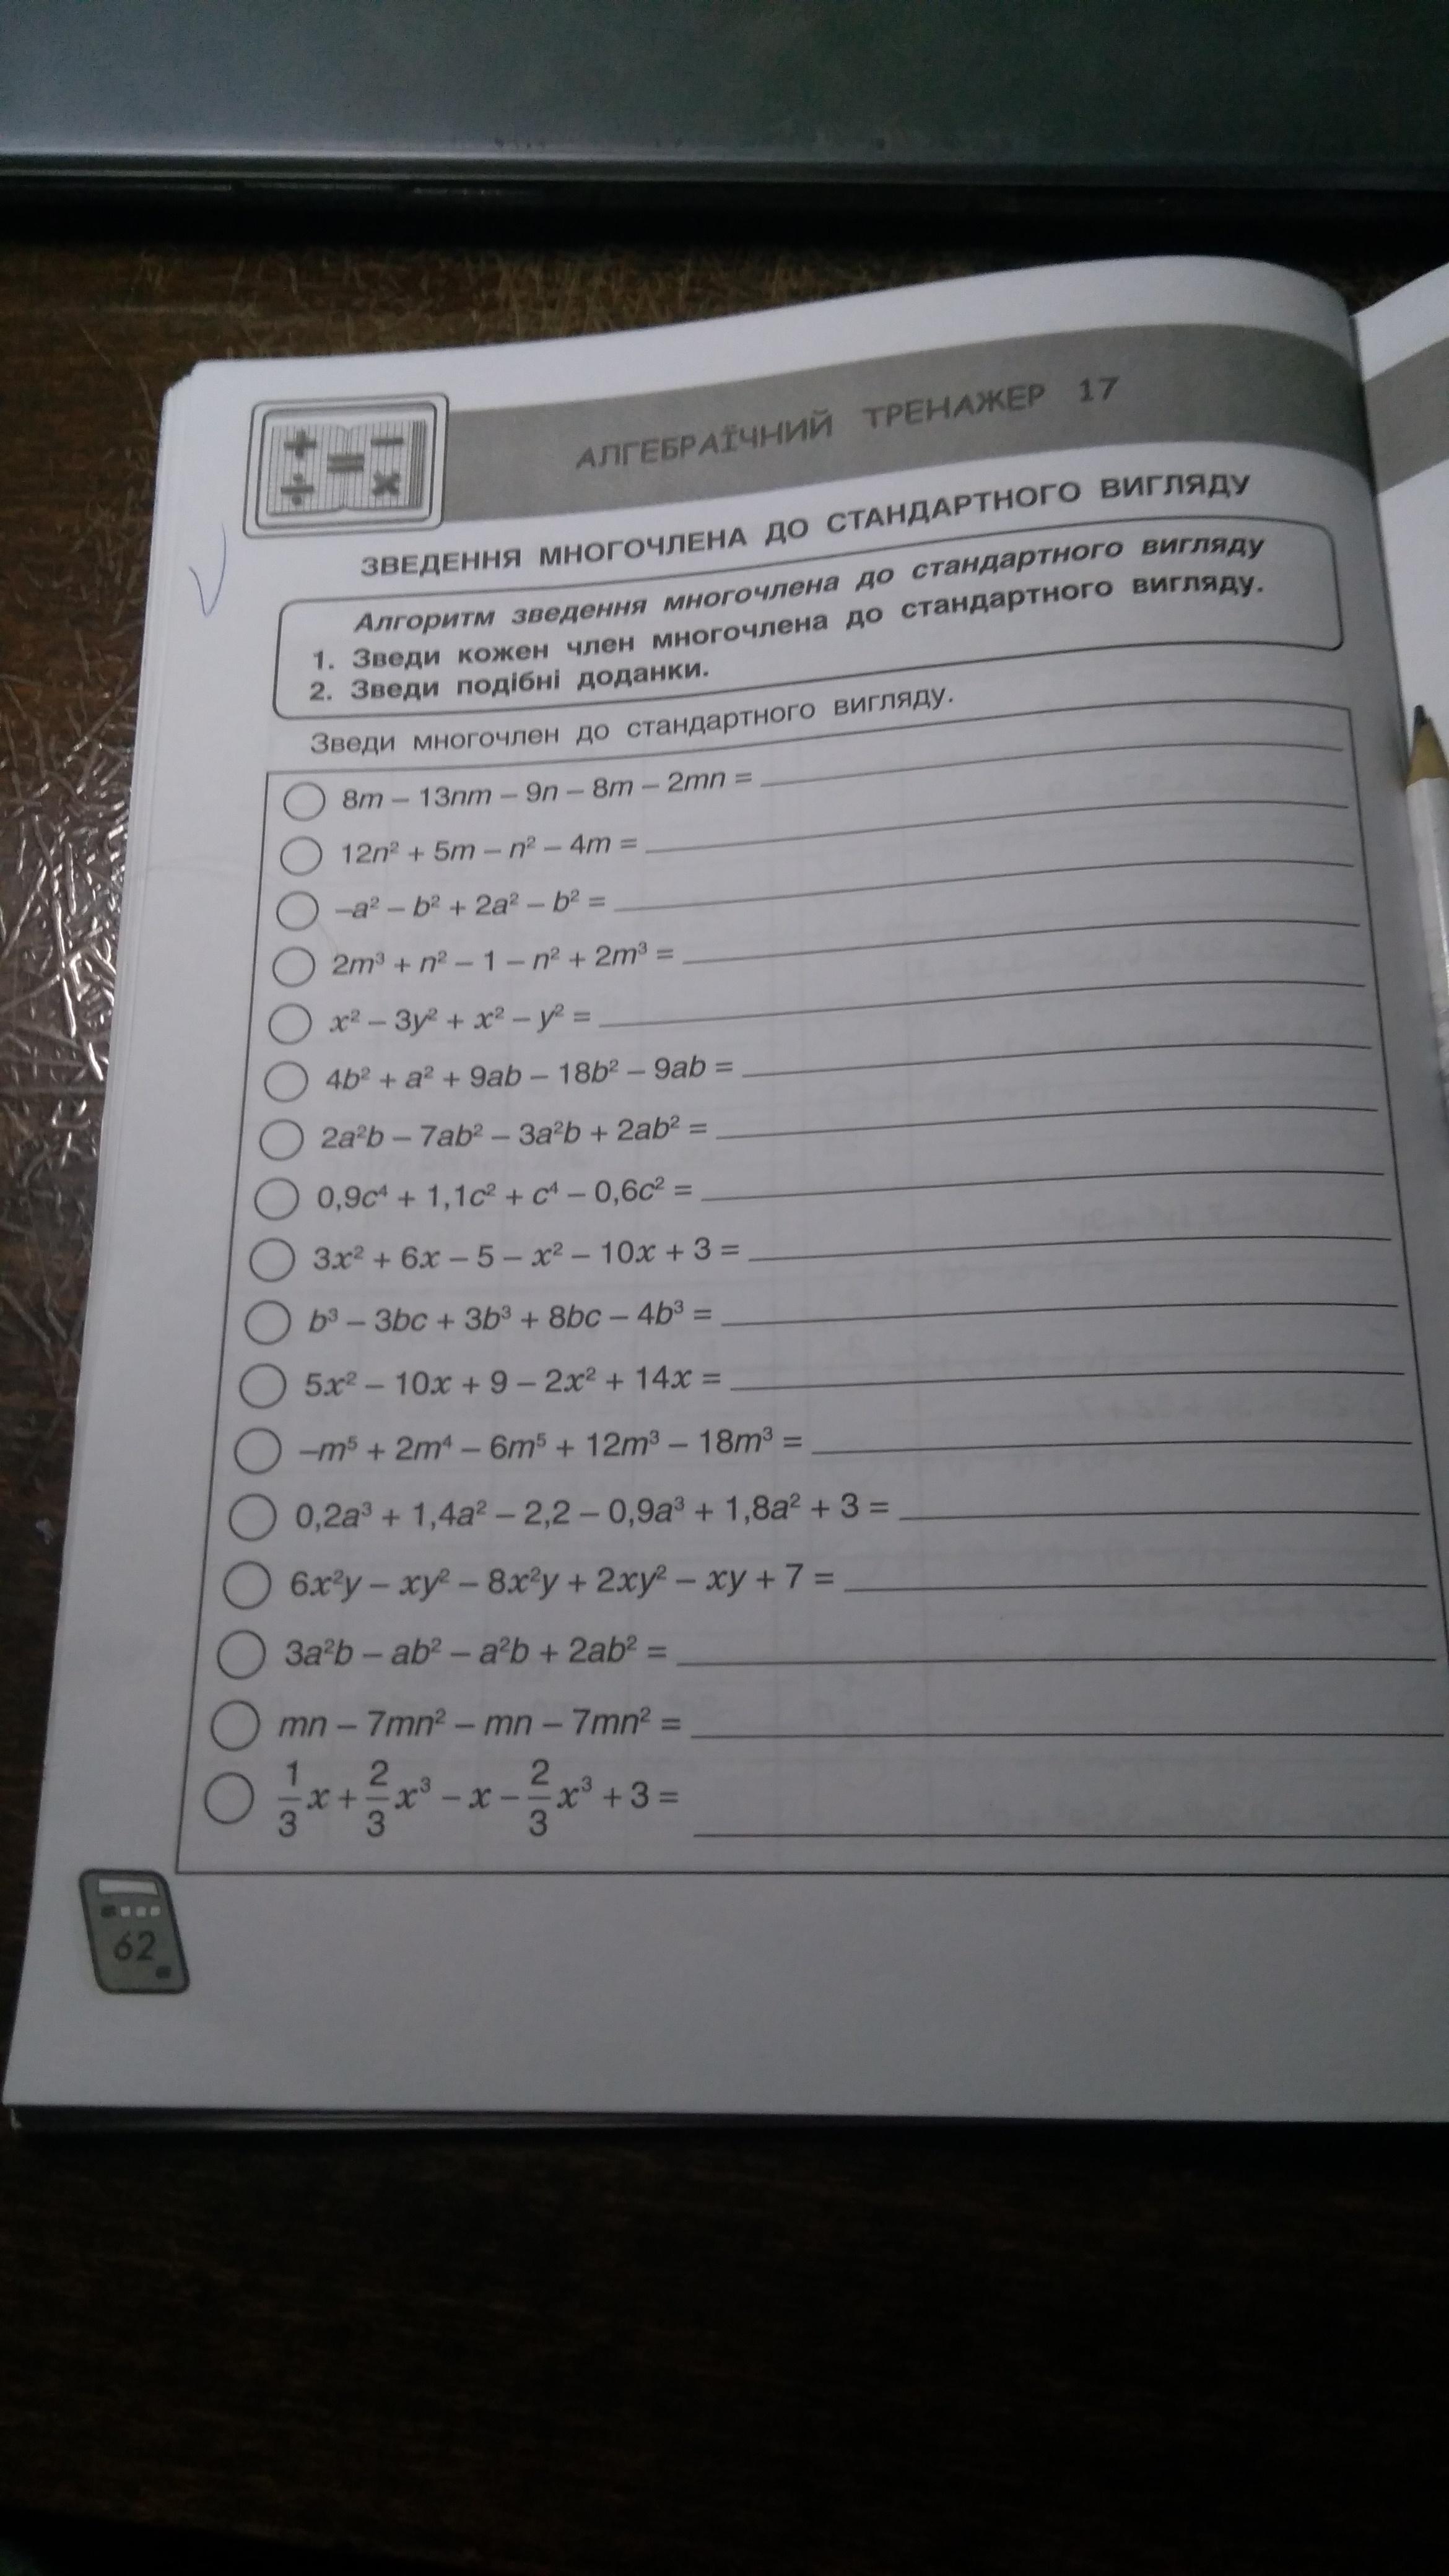 АЛГЕБРАЇЧНИЙ ТРЕНАЖЕР 17
+ − = ÷ ×
ЗВЕДЕННЯ МНОГОЧЛЕНА ДО СТАНДАРТНОГО ВИГЛЯДУ
Алгоритм зведення многочлена до стандартного вигляду
1. Зведи кожен член многочлена до стандартного вигляду.
2. Зведи подібні доданки.
Зведи многочлен до стандартного вигляду.
8m – 13nm – 9n – 8m – 2mn =
12n² + 5m – n² – 4m =
–a² – b² + 2a² – b² =
2m³ + n² – 1 – n² + 2m³ =
x² – 3y² + x² – y² =
4b² + a² + 9ab – 18b² – 9ab =
2a²b – 7ab² – 3a²b + 2ab² =
0,9c⁴ + 1,1c² + c⁴ – 0,6c² =
3x² + 6x – 5 – x² – 10x + 3 =
b³ – 3bc + 3b³ + 8bc – 4b³ =
5x² – 10x + 9 – 2x² + 14x =
–m⁵ + 2m⁴ – 6m⁵ + 12m³ – 18m³ =
0,2a³ + 1,4a² – 2,2 – 0,9a³ + 1,8a² + 3 =
6x²y – xy² – 8x²y + 2xy² – xy + 7 =
3a²b – ab² – a²b + 2ab² =
mn – 7mn² – mn – 7mn² =
1/3 x + 2/3 x³ – x – 2/3 x³ + 3 =
62